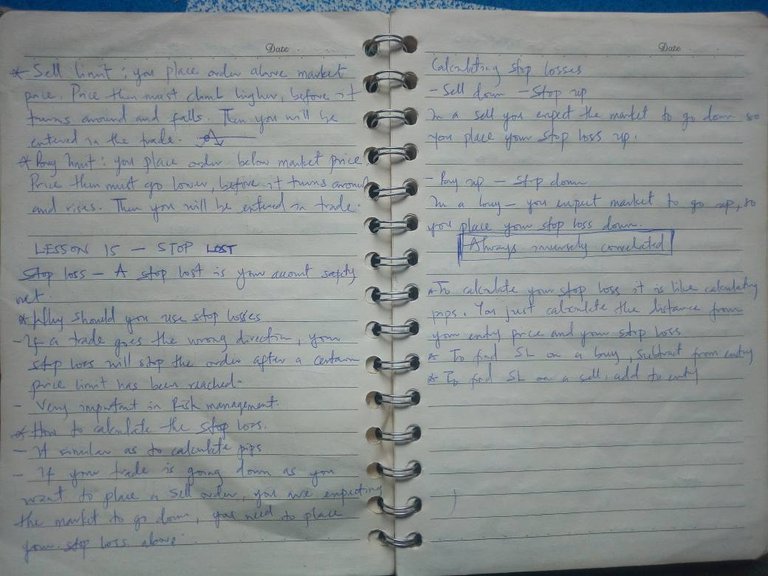 Date
* Sell limit: you place order above market
price. Price then must climb higher, before it
turns around and falls. Then you will be
entered in the trade.
* Buy limit: you place order below market price
Price then must go lower, before it turns around
and rises. Then you will be entered in trade.
LESSON 15 - STOP LOST
Stop loss - A stop lost is your account safety
net
* Why should you use stop losses
- If a trade goes the wrong direction, your
stop loss will stop the order after a certain
price limit has been reached.
- Very important in Risk management.
* How to calculate the stop loss.
- It similar as to calculate pips
- If your trade is going down as you
want to place a sell order, you are expecting
the market to go down, you need to place
your stop loss above.
Date
Calculating stop losses
- Sell down - Stop up
In a sell you expect the market to go down so
you place your stop loss up.
- Buy up - stop down
In a buy - you expect market to go up, so
you place your stop loss down.
Always inversely correlated
* To calculate your stop loss it is like calculating
pips. You just calculate the distance from
your entry price and your stop loss
* To find SL on a buy, subtract from entry
* To find SL on a sell, add to entry